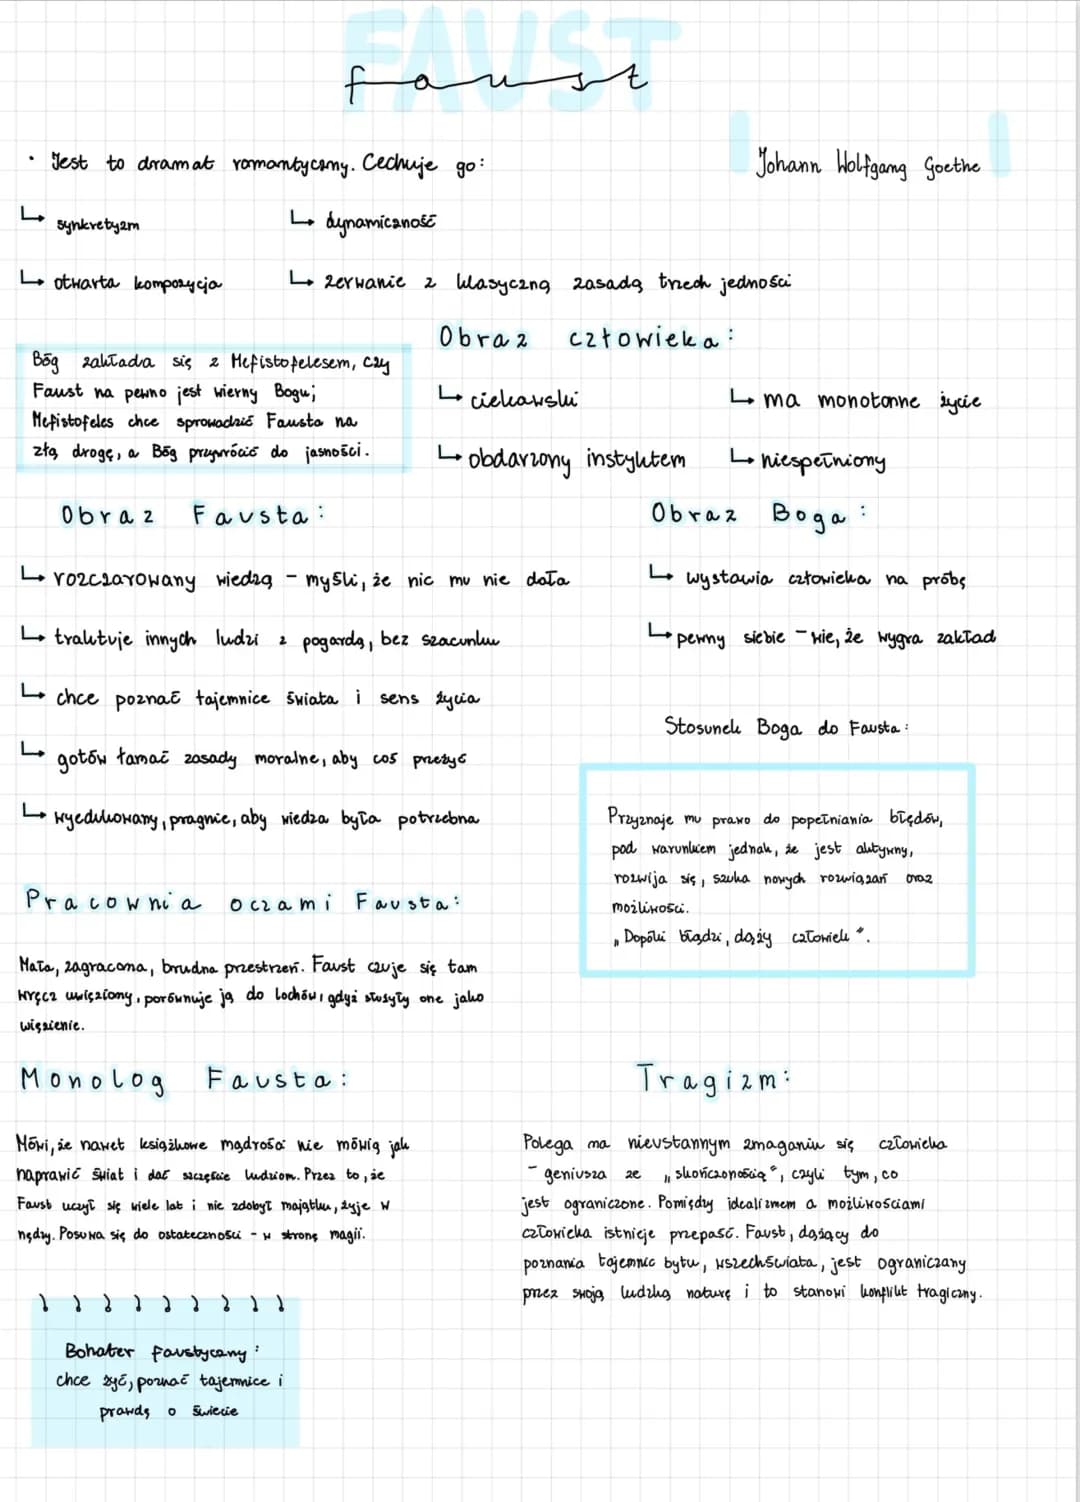 FAUST
faust
• Jest to dramat romantyczny. Cechuje go:
Johann Wolfgang Goethe
↳ synkretyzm
↳ dynamiczność
↳ otwarta kompozycja
↳ zerwanie z klasyczną zasadą trzech jedności
Bóg zakłada się z Mefistofelesem, czy
Faust na pewno jest wierny Bogu;
Mefistofeles chce sprowadzić Fausta na
złą drogę, a Bóg przywrócić do jasności.
Obraz człowieka:
↳ ciekawski
↳ ma monotonne życie
↳ obdarzony instynktem
↳ niespełniony
Obraz Fausta:
↳ rozczarowany wiedzą - myśli, że nic mu nie dała
↳ traktuje innych ludzi z pogardą, bez szacunku
↳ chce poznać tajemnice świata i sens życia
↳ gotów łamać zasady moralne, aby coś przeżyć
↳ wyedukowany, pragnie, aby wiedza była potrzebna
Obraz Boga:
↳ wystawia człowieka na próbę
↳ pewny siebie - wie, że wygra zakład
Stosunek Boga do Fausta:
Przyznaje mu prawo do popełniania błędów,
pod warunkiem jednak, że jest aktywny,
rozwija się, szuka nowych rozwiązań oraz
możliwości.
„Dopóki błądzi, dąży człowiek".
Pracownia oczami Fausta:
Mała, zagracona, brudna przestrzeń. Faust czuje się tam
wręcz uwięziony, porównuje ją do lochów, gdyż służyły one jako
więzienie.
Monolog Fausta:
Mówi, że nawet książkowe mądrości nie mówią jak
naprawić świat i dać szczęście ludziom. Przez to, że
Faust uczył się wiele lat i nic zdobył majątku, żyje w
nędzy. Posuwa się do ostateczności - w stronę magii.
Tragizm:
Polega na nieustannym zmaganiu się człowieka
- geniusza ze „skończonością", czyli tym, co
jest ograniczone. Pomiędzy idealizmem a możliwościami
człowieka istnieje przepaść. Faust, dążący do
poznania tajemnic bytu, wszechświata, jest ograniczany
przez swoją ludzką naturę i to stanowi konflikt tragiczny.
Bohater faustyczny:
chce żyć, poznać tajemnice i
prawdę o świecie